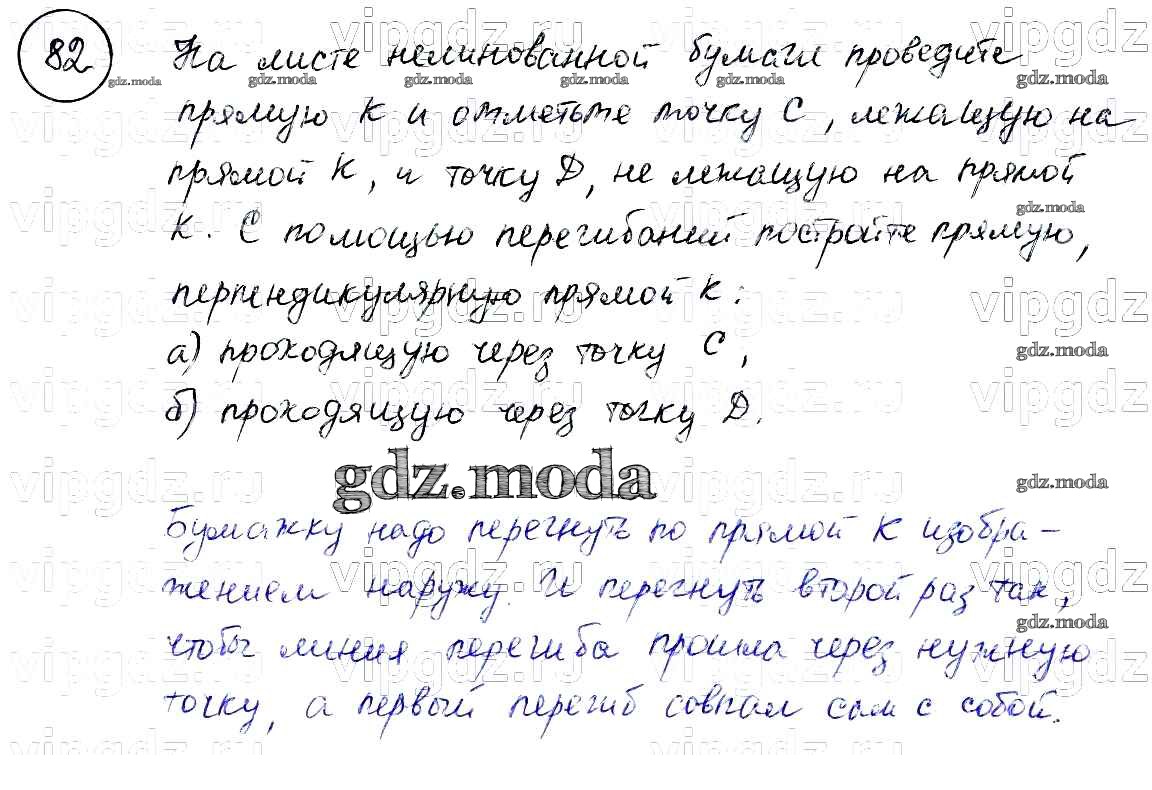 82 На листе нелинованной бумаги проведите
прямую К и отметьте точку С, лежащую на
прямой К, и точку D, не лежащую на прямой
К. С помощью перегибаний постройте прямую,
перпендикулярную прямой К:
а) проходящую через точку С,
б) проходящую через точку D.
gdz.moda
Бумажку надо перегнуть по прямой К изобра-
жением наружу. И перегнуть второй раз так,
чтобы линия перегиба прошла через нужную
точку, а первый перегиб совпал сам с собой.